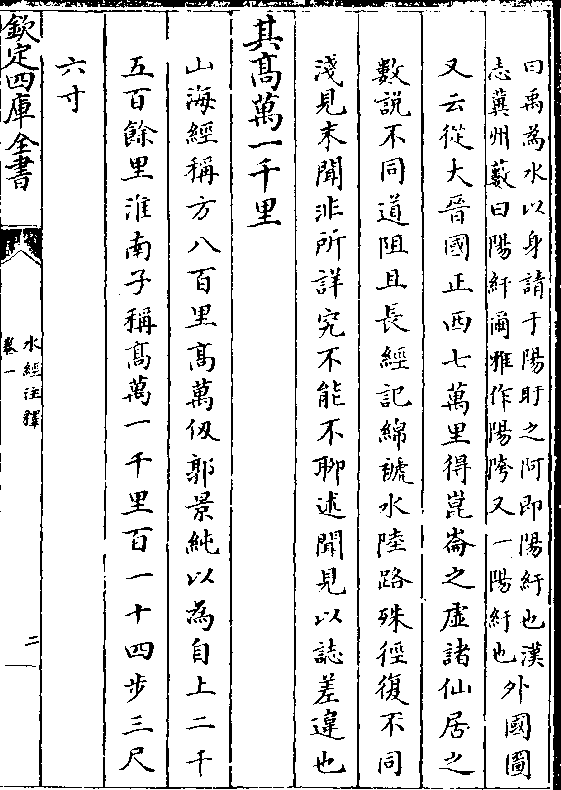 曰禹為水以身請于陽盱之阿即陽紆也漢
志冀州藪曰陽紆爾雅作陽陓又一陽紆也外國圖
又云從大晉國正西七萬里得崑崙之虛諸仙居之
數說不同道阻且長經記綿褫水陸路殊徑復不同
淺見末聞非所詳究不能不聊述聞見以誌差違也
其高萬一千里
山海經稱方八百里高萬仭郭景純以為自上二千
五百餘里淮南子稱高萬一千里百一十四步三尺
六寸
欽定四庫全書
水經注釋
卷一
二